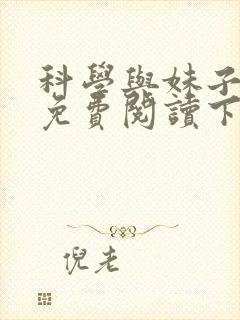 科學與妹子
免費閱讀下
倪老